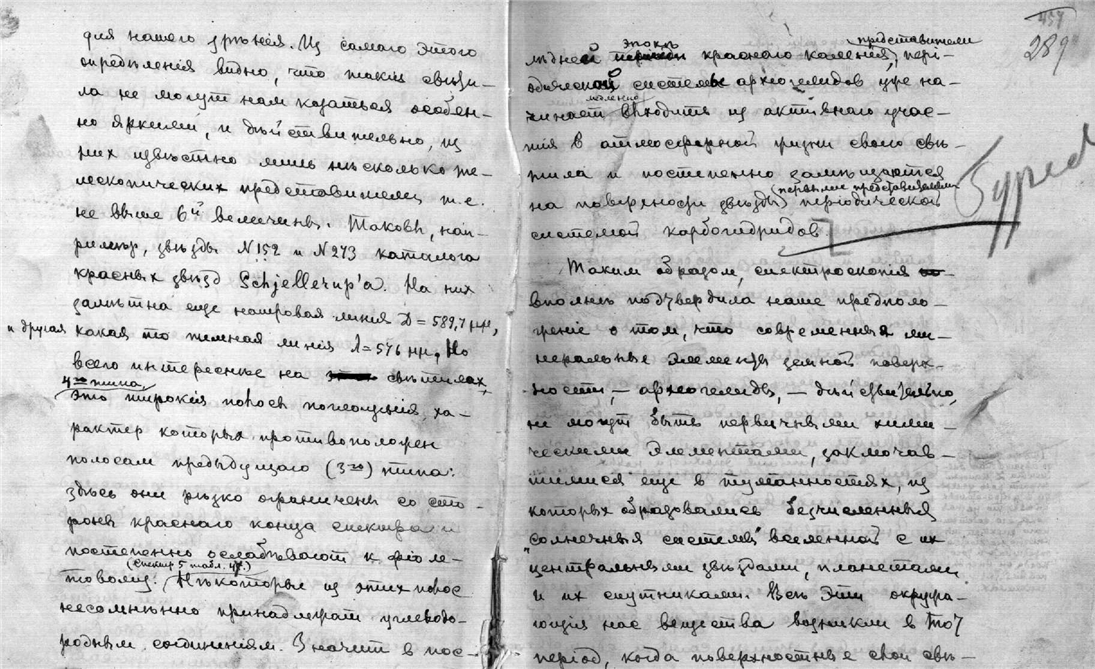 для нашего зрѣнія. Из самого этого
опредѣленія видно, что такія свѣти-
ла не могут нам казаться особен-
но яркими, и дѣйствительно, из
них извѣстно лишь нѣсколько те-
лескопических представителей, т.е.
не выше 6й величины. Таковы, нап-
ример, звѣзды N152 и N273 каталога
красных звѣзд Schjellerup'а. На них
замѣтна еще натровая линія D = 589,7 μμ,
и другая какая то темная линія λ=576 μμ. Но
всего интереснѣе на свѣтилах
4го типа,
это широкія полосы поглощенія, ха-
рактер которых противоположен
полосам предыдущаго (3го) типа:
здѣсь они рѣзко ограничены со сто-
роны краснаго конца спектра и
постепенно ослабѣвают к фіоле-
(спектр 5 табл. )
товому. Нѣкоторые из этих полос
несомнѣнно принадлежат углеводо-
родным соединеніям. Значит в пос-
457
289
эпохѣ представители
лѣдней краснаго каленія, пері-
одической системы археогелидов уже на-
чинает выходить из активнаго учас-
тія в атмосферной жизни своего свѣ-
тила и постепенно замѣщаются
(первыми представителями
на поверхности звѣзды періодической
системой карбогидридов.
Таким образом, спектроскопія
вполнѣ подтвердила наше предполо-
женіе о том, что современные ми-
неральные элементы земной поверх-
ности, — археогелиды, — дѣйствительно,
не могут быть первичными хими-
ческими элементами, заключав-
шимися еще в туманностях, из
которых образовались безчисленныя
"солнечныя системы" вселенной с их
центральными звѣздами, планетами
и их спутниками. Всѣ эти окружа-
ющія нас вещества возникли в тот
період, когда поверхностные слои свѣ-